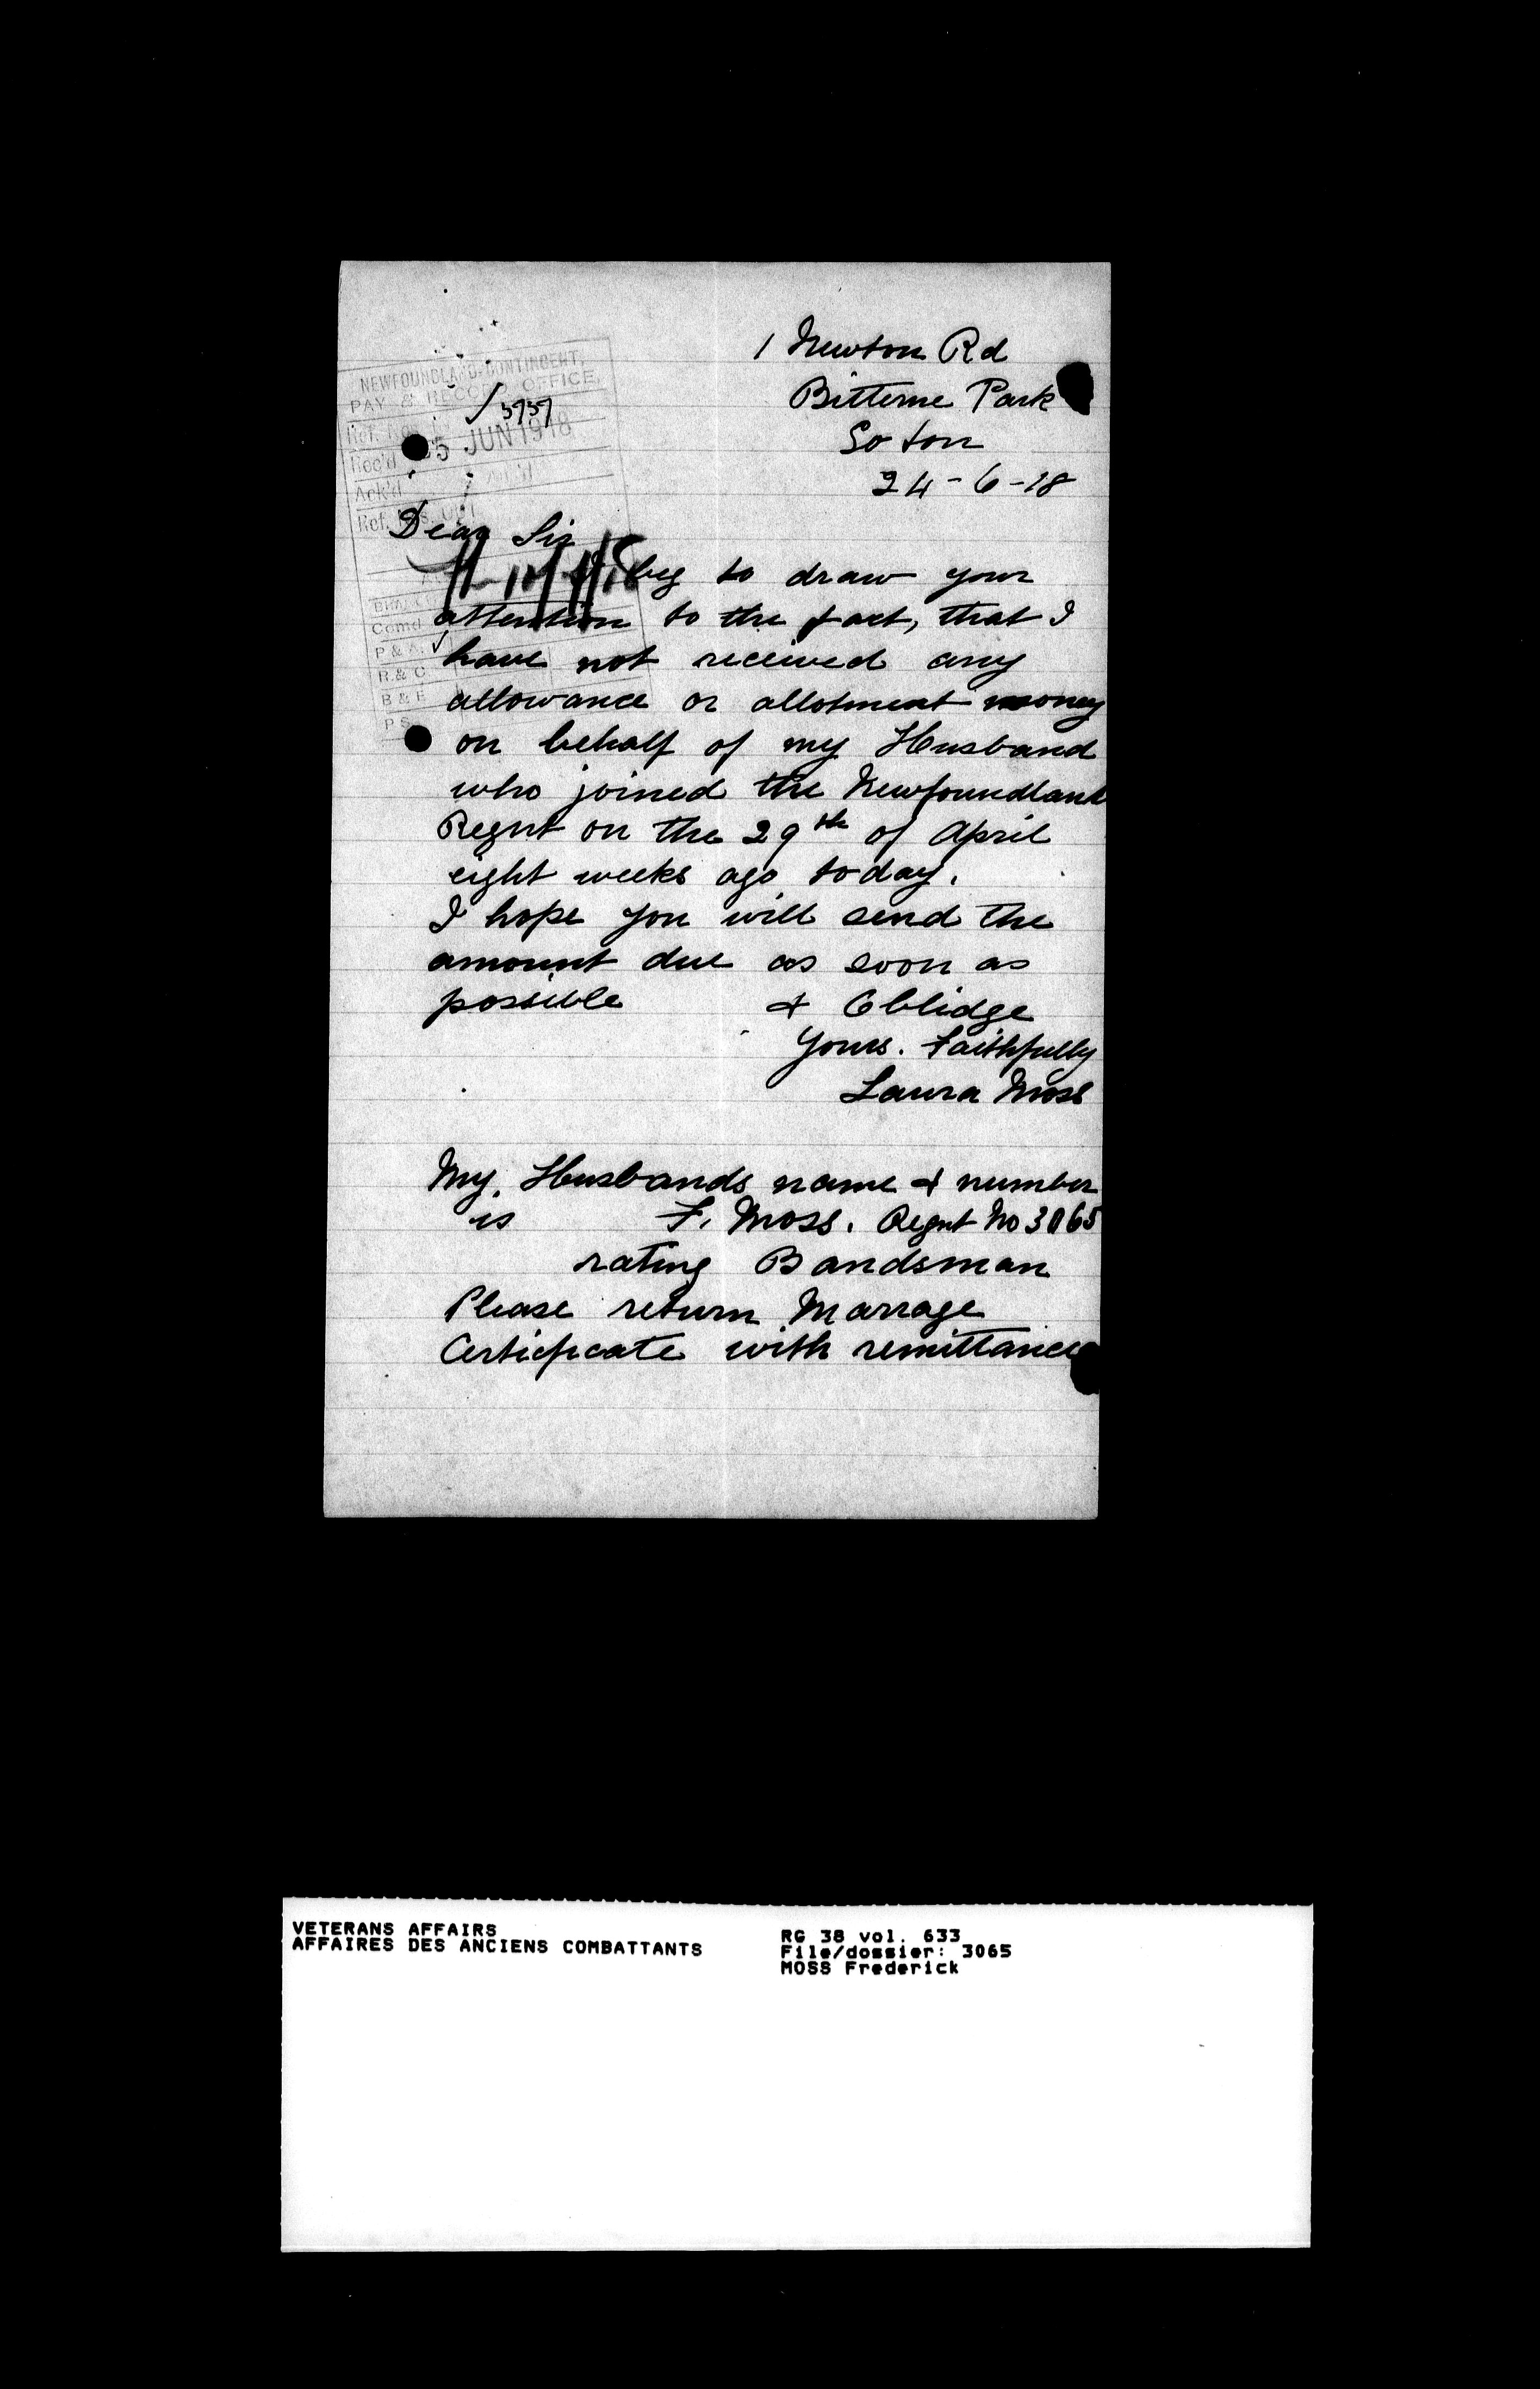 1 Newton Rd
Bitterne Park
So ton
24-6-18
NEWFOUNDLAND CONTINGENT,
PAY & RECORD OFFICE,
5737
Ref. Nos.
Rec'd 25 JUN 1918
Ack'd
Ref. Nos.
Comd
P & A
R. & C
B & E
P S
Dear Sir
I beg to draw your
attention to the fact, that I
have not received any
allowance or allotment money
on behalf of my Husband
who joined the Newfoundland
Regnt on the 29th of April
eight weeks ago today.
I hope you will send the
amount due as soon as
possible & Oblidge
Yours. Faithfully
Laura Moss
My. Husbands name & number
is F. Moss. Regnt No 3065
rating Bandsman
Please return Marrage
Certificate with remittance
VETERANS AFFAIRS
AFFAIRES DES ANCIENS COMBATTANTS
RG 38 vol. 633
File/dossier: 3065
MOSS Frederick